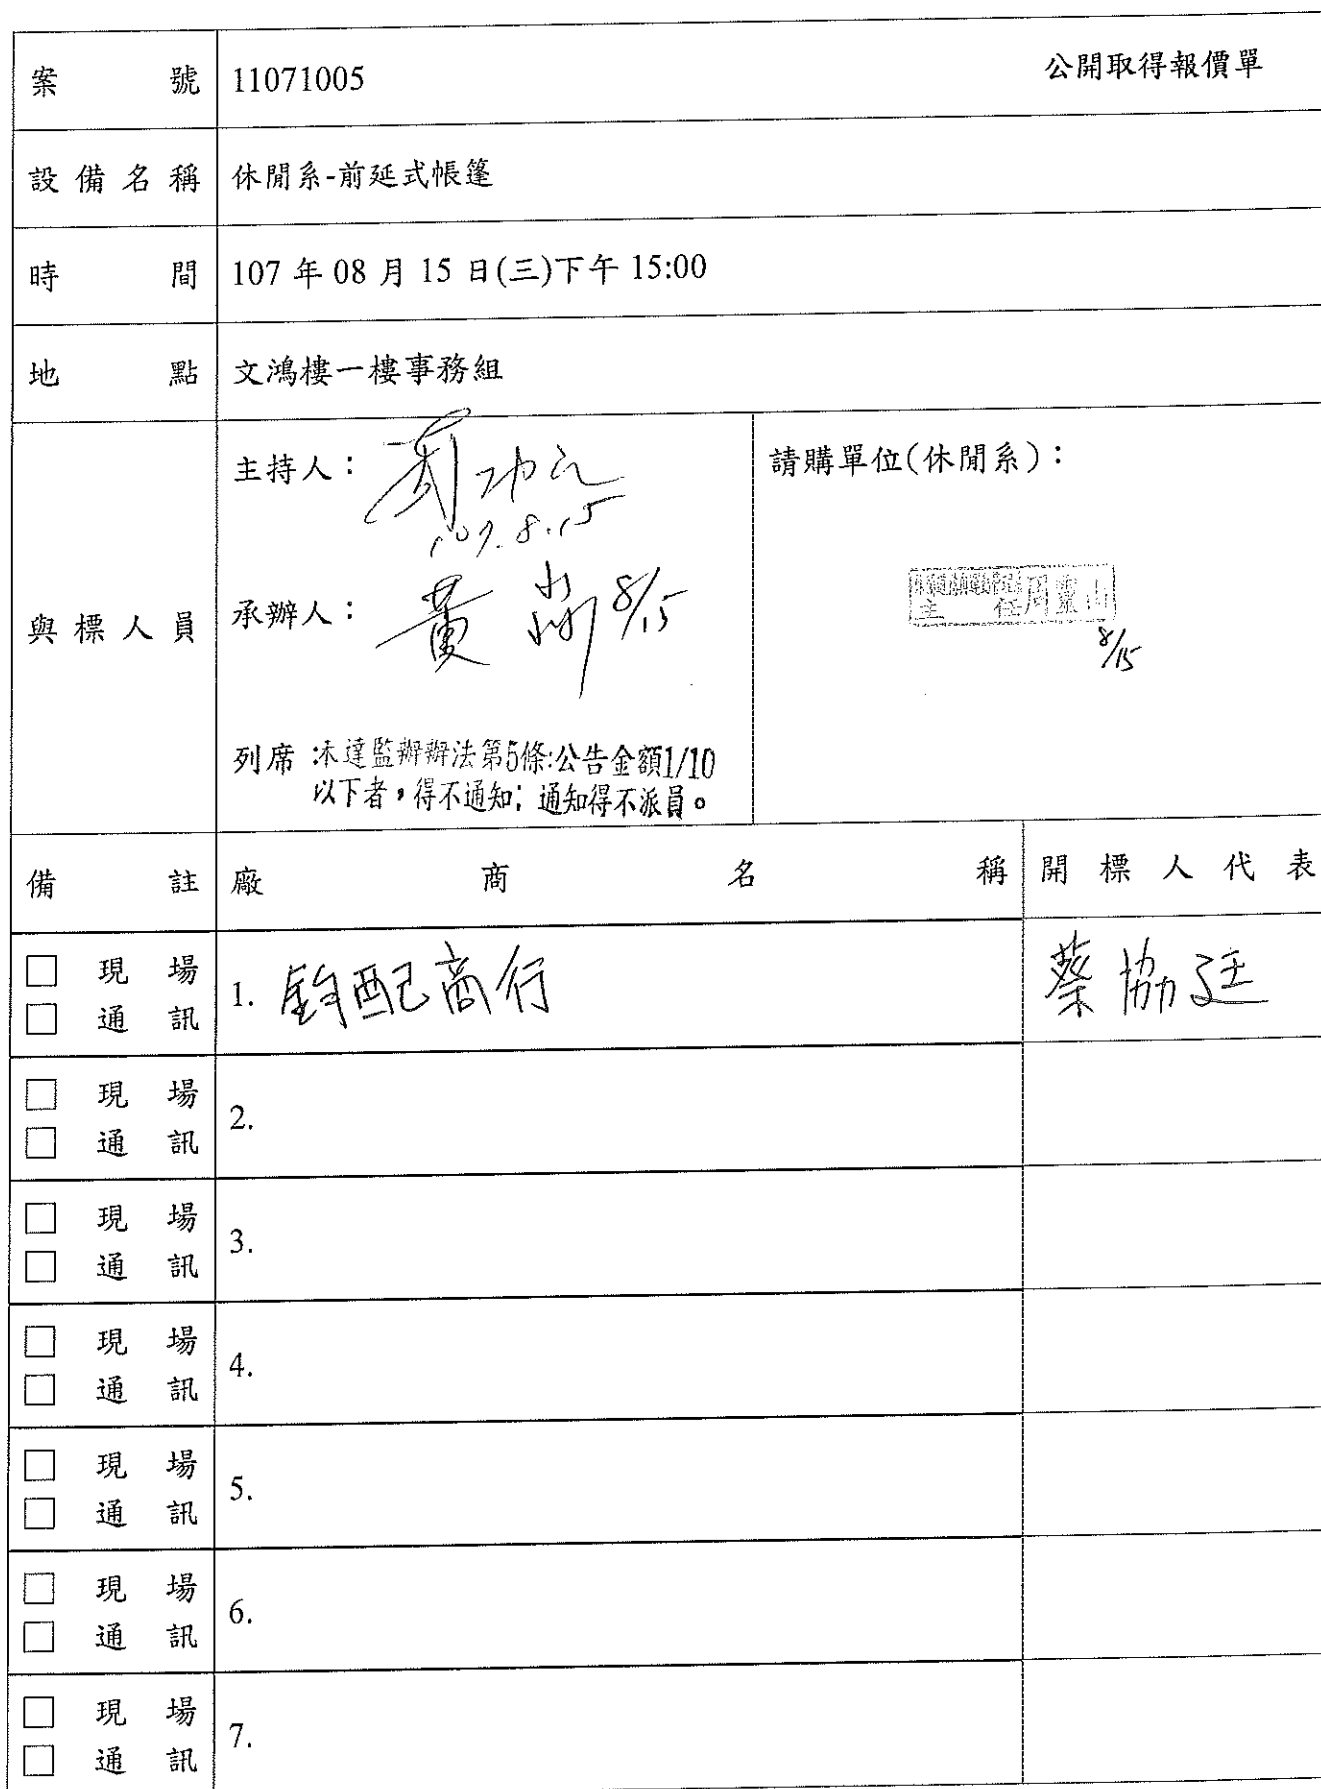 案號 11071005 公開取得報價單
設備名稱 休閒系-前延式帳篷
時間 107 年 08 月 15 日(三)下午 15:00
地點 文鴻樓一樓事務組
與標人員
主持人：
107.8.15
承辦人：黃 8/15
列席：未達監辦辦法第5條:公告金額1/10
以下者，得不通知；通知得不派員。
請購單位(休閒系)：
主任周靈山
8/15
備註 廠商名稱 開標人代表
□ 現場
□ 通訊
1. 鈞配商行 蔡協廷
□ 現場
□ 通訊
2.
□ 現場
□ 通訊
3.
□ 現場
□ 通訊
4.
□ 現場
□ 通訊
5.
□ 現場
□ 通訊
6.
□ 現場
□ 通訊
7.